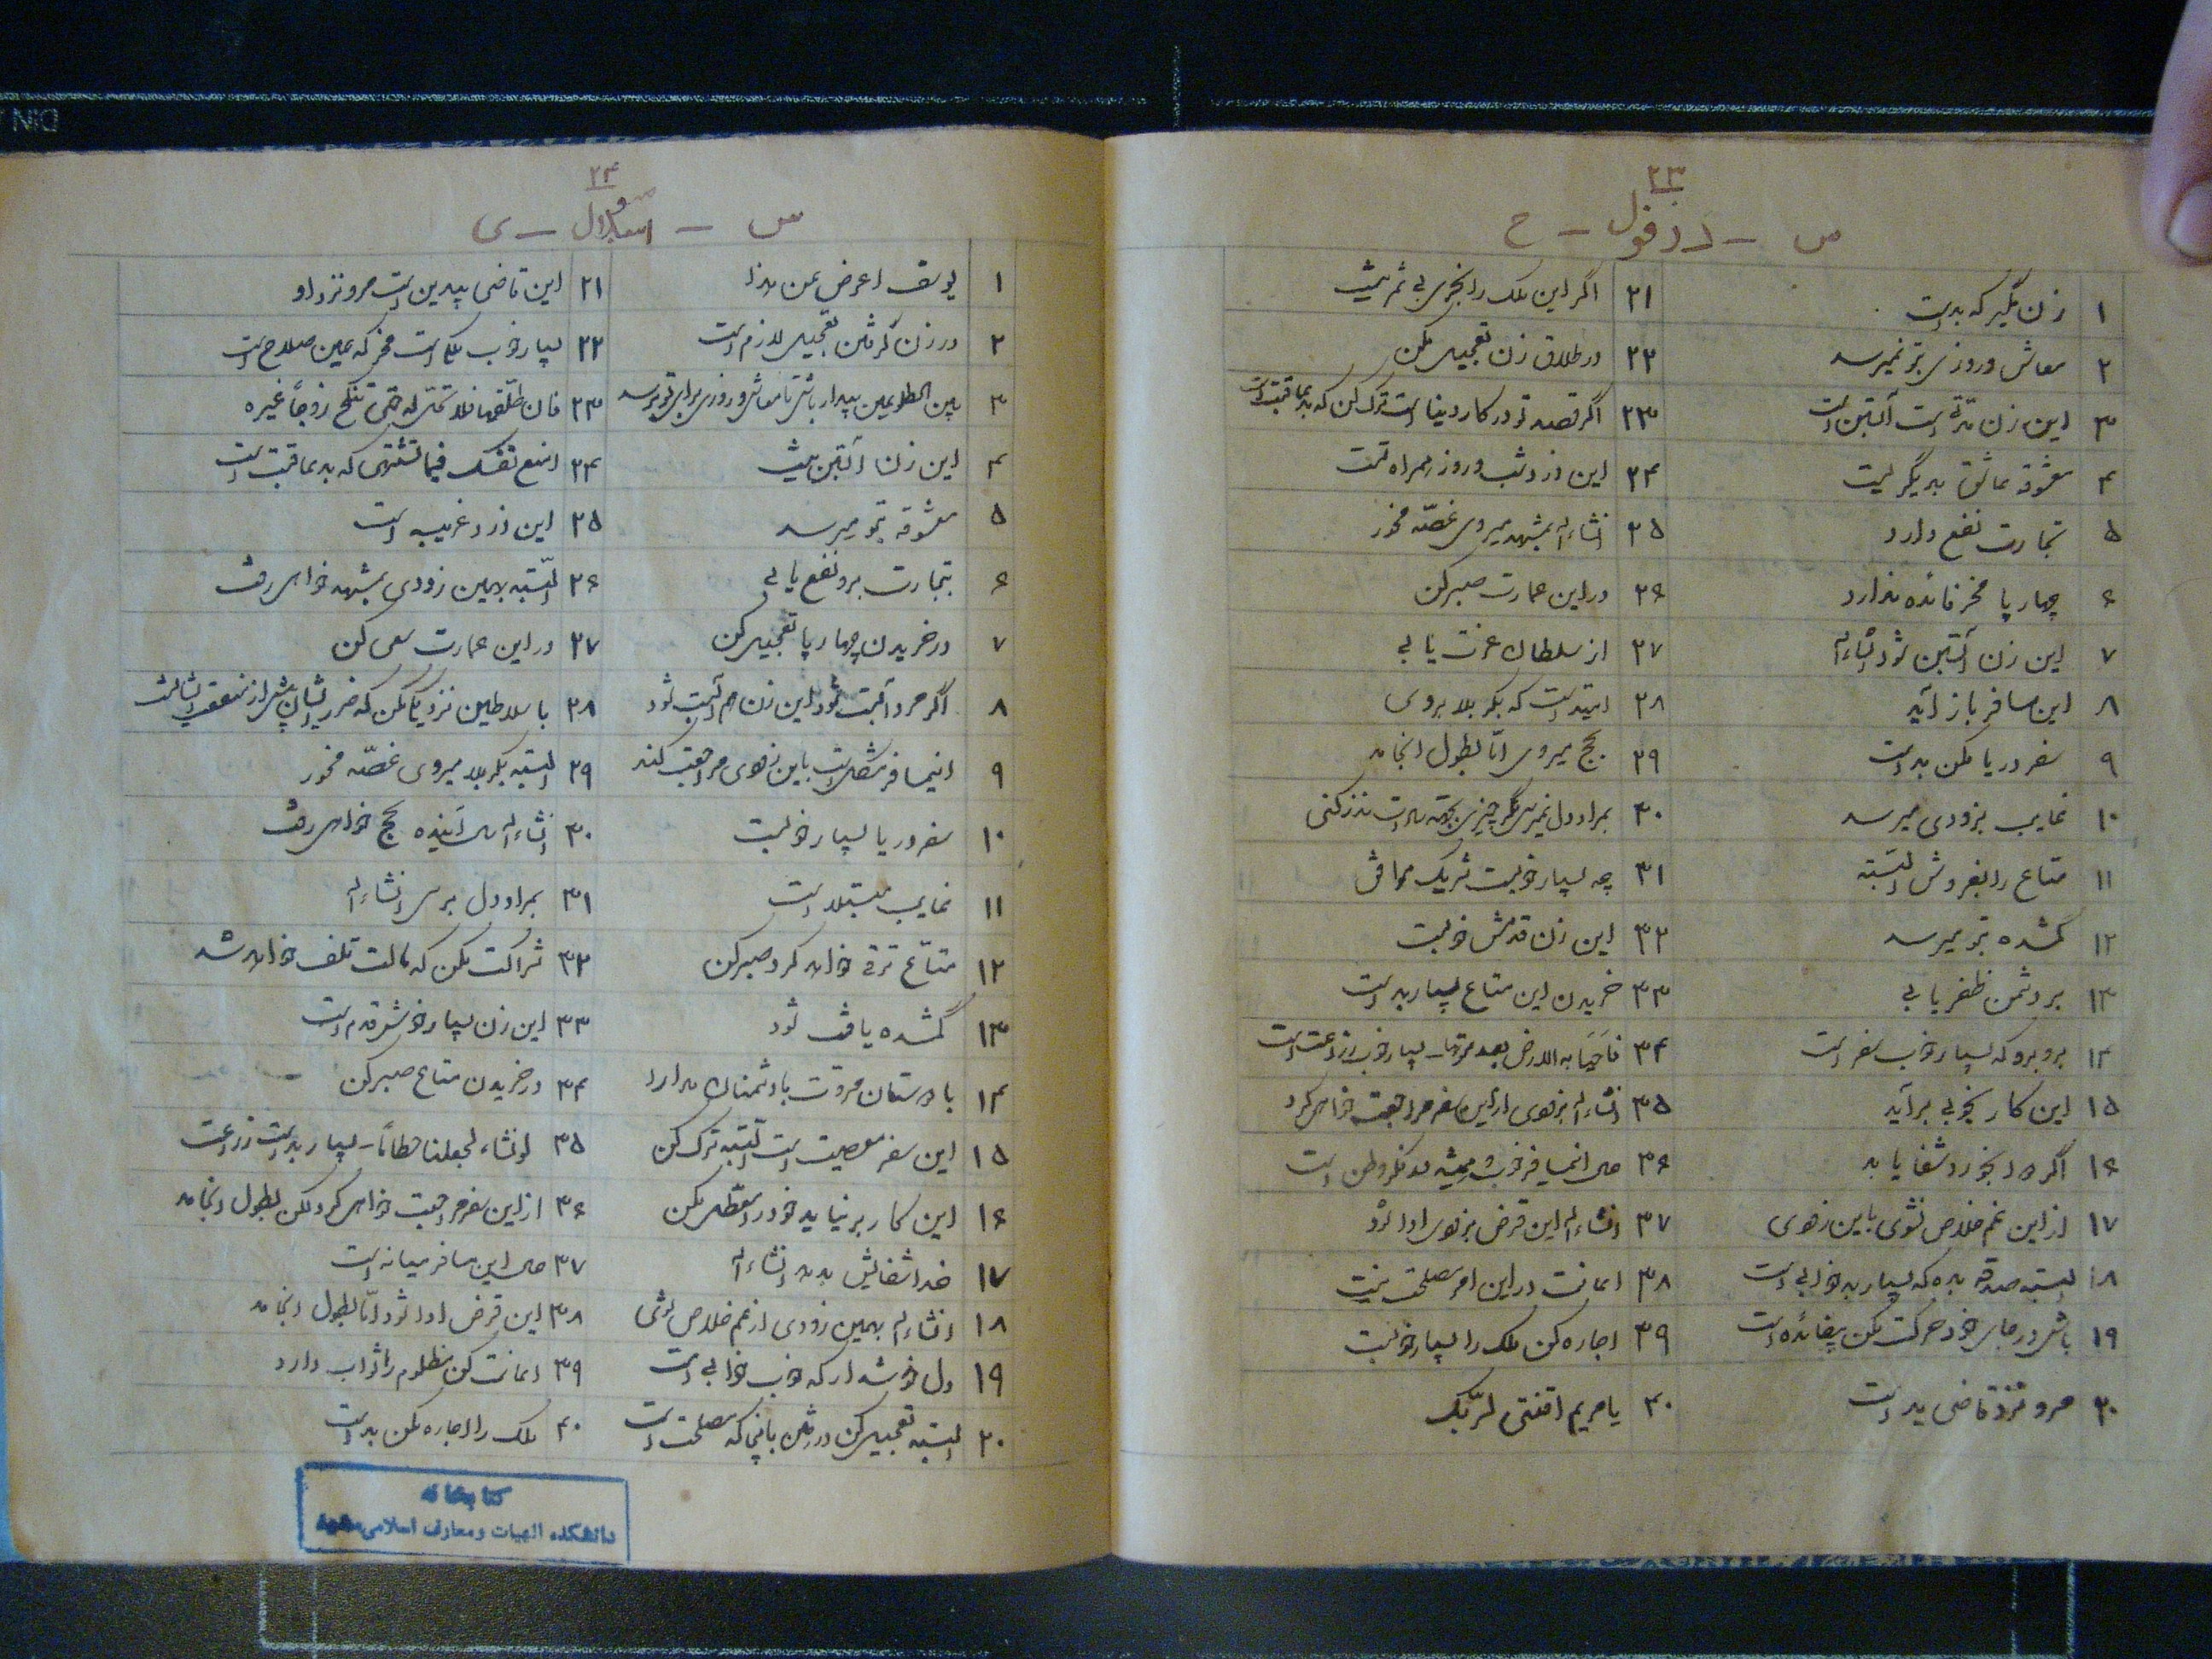 ۲۳
س - دزفول - ح
۱ زن مگیر که بد است
۲ معاش و روزی بتو نمیرسد
۳ این زن مدتی است آبستن است
۴ معشوقه عاشق بدیگریست
۵ تجارت نفع دارد
۶ چهارپا مخر فائده ندارد
۷ این زن آبستن شود انشاءاله
۸ این مسافر باز آید
۹ سفر دریا مکن بد است
۱۰ غایب بزودی میرسد
۱۱ متاع را بفروش البته
۱۲ گمشده بتو میرسد
۱۳ بر دشمن ظفر یابی
۱۴ برو برو که بسیار خوب سفر است
۱۵ این کار بخوبی برآید
۱۶ اگر دوا بخورد شفا یابد
۱۷ از این غم خلاص نشوی باین زودی
۱۸ البته صدقه بده که بسیار بد خوابی است
۱۹ باش در جای خود حرکت مکن بیفائده است
۲۰ مرو نزد قاضی بد است
۲۱ اگر این ملک را بخری بی ثمر نیست
۲۲ در طلاق زن تعجیل مکن
۲۳ اگر قصد تو در کار دنیا است ترک کن که بد عاقبت است
۲۴ این دزد شب و روز همراه تست
۲۵ انشاءاله بمشهد میروی غصّه مخور
۲۶ در این عمارت صبر کن
۲۷ از سلطان عزت یابی
۲۸ امید است که بکربلا بروی
۲۹ بحج میروی امّا بطول انجامد
۳۰ بمراد دل نمیرسی مگر چیزی بجهة سادات نذر کنی
۳۱ چه بسیار خوبست شریک موافق
۳۲ این زن قدمش خوبست
۳۳ خریدن این متاع بسیار بد است
۳۴ فاحیا به الارض بعد موتها - بسیار خوب زراعت است
۳۵ انشاءاله بزودی از این سفر مراجعت خواهی کرد
۳۶ حال این مسافر خوب و همیشه در فکر وطن است
۳۷ انشاءاله این قرض بزودی ادا شود
۳۸ اعانت در این امر مصلحت نیست
۳۹ اجاره کن ملک را بسیار خوبست
۴۰ یا مریم اقنتی لربّک
۲۴
س - - ی
۱ یوسف اعرض عن هذا
۲ در زن گرفتن تعجیل لازم است
۳ بین الطلوعین بیدار باش تا معاش و روزی برای تو برسد
۴ این زن آبستن نیست
۵ معشوقه بتو میرسد
۶ بتجارت برو نفع یابی
۷ در خریدن چهارپا تعجیل کن
۸ اگر مرد آبست شود این زن هم آبست شود
۹ اینمسافر مشکل است باین زودی مراجعت کند
۱۰ سفر دریا بسیار خوبست
۱۱ غایب مبتلا است
۱۲ متاع ترقی خواهد کرد صبر کن
۱۳ گمشده یافت شود
۱۴ با دوستان مروّت با دشمنان مدارا
۱۵ این سفر معصیت است البته ترک کن
۱۶ این کار بر نیاید خود را معطل مکن
۱۷ خدا شفایش بدهد انشاءاله
۱۸ انشاءاله بهمین زودی از غم خلاص شوی
۱۹ دل خوشدار که خوب خوابی است
۲۰ البته تعجیل کن در رفتن بانجا که مصلحت است
۲۱ این قاضی بیدین است مرو نزد او
۲۲ بسیار خوب ملک است مخر که همین صلاح است
۲۳ فان طلّقها فلا تحلّ له حتی تنکح زوجاً غیره
۲۴ امنع نفسک فیما تشتهی که بد عاقبت است
۲۵ این دزد غریبه است
۲۶ البّته بهمین زودی بمشهد خواهی رفت
۲۷ در این عمارت سعی کن
۲۸ با سلاطین نزدیکی مکن که ضرر ایشان بیشتر از منفعت ایشانست
۲۹ البته بکربلا میروی غصّه مخور
۳۰ انشاءاله سال آینده بحج خواهی رفت
۳۱ بمراد دل برسی انشاءاله
۳۲ شراکت مکن که مالت تلف خواهد شد
۳۳ این زن بسیار خوشقدم است
۳۴ در خریدن متاع صبر کن
۳۵ لو نشاء لجعلناه حطاماً - بسیار بد است زراعت
۳۶ از این سفر مراجعت خواهی کرد لکن بطول انجامد
۳۷ حال این مسافر میانه است
۳۸ این قرض ادا شود امّا بطول انجامد
۳۹ اعانت کن مظلوم را ثواب دارد
۴۰ ملک را اجاره مکن بد است
کتابخانه
دانشکده الهیات و معارف اسلامی مشهد